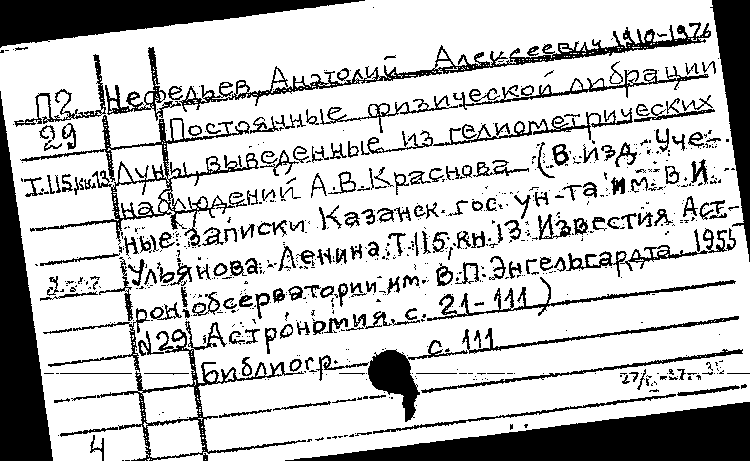 Нефедьев, Анатолий Алексеевич 1910-1976
П2
29
Постоянные физической либрации
Т.115,кн.13 Луны, выведенные из гелиометрических
наблюдений А.В.Краснова (В изд. Уче-
ные записки Казанск. гос. ун-та им. В.И.
Ульянова-Ленина.Т.115,кн.13 Известия Аст-
рон.обсерватории им. В.П.Энгельгардта. 1955
№29 Астрономия. с. 21-111)
Библиогр. с. 111
4